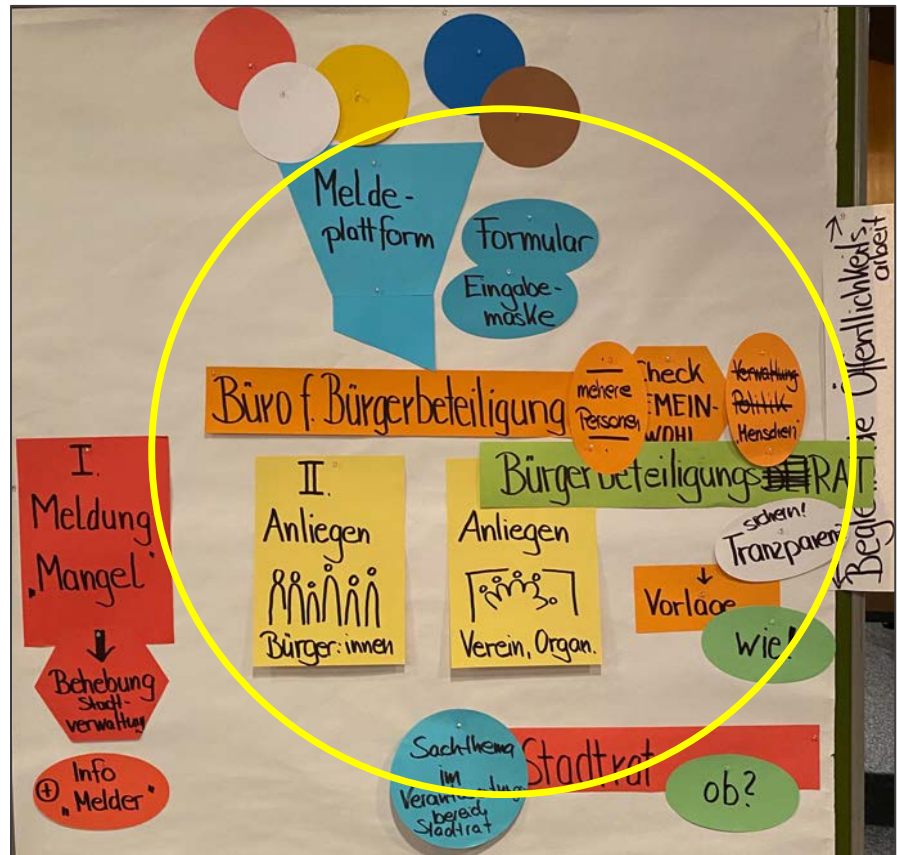 Melde-
plattform
Formular
Eingabe-
maske
Büro f. Bürgerbeteiligung
mehere
Personen
Check
GEMEIN-
WOHL
Verwaltung
Politik
"Menschen"
Bürgerbeteiligungs RAT
I.
Meldung
"Mangel"
Behebung
Stadt-
verwaltung
+ Info
"Melder"
II.
Anliegen
Bürger:innen
Anliegen
Verein, Organ.
sichern!
Tranzparenz
Vorlage
wie!
Sachthema
im
Verantwortungs
bereich
Stadtrat
Stadtrat
ob?
Begleitende Öffentlichkeits
arbeit